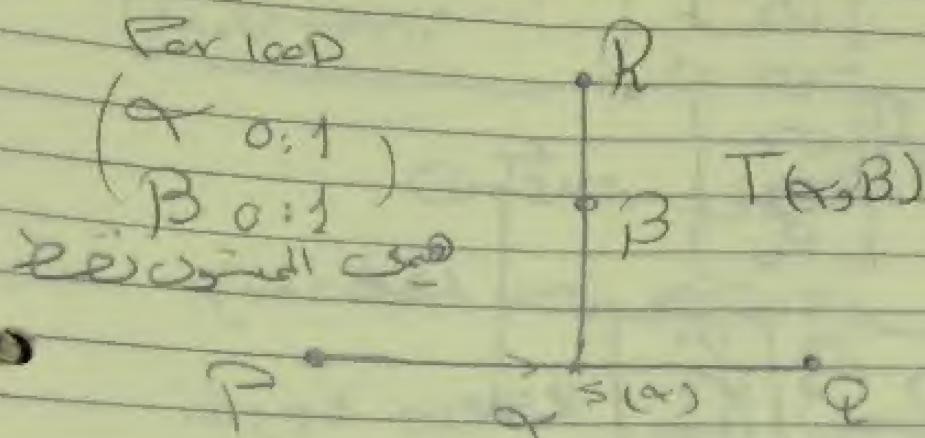 For loop
α 0:1
β 0:1
R
T(α,β)
β
P
α
S(α)
Q